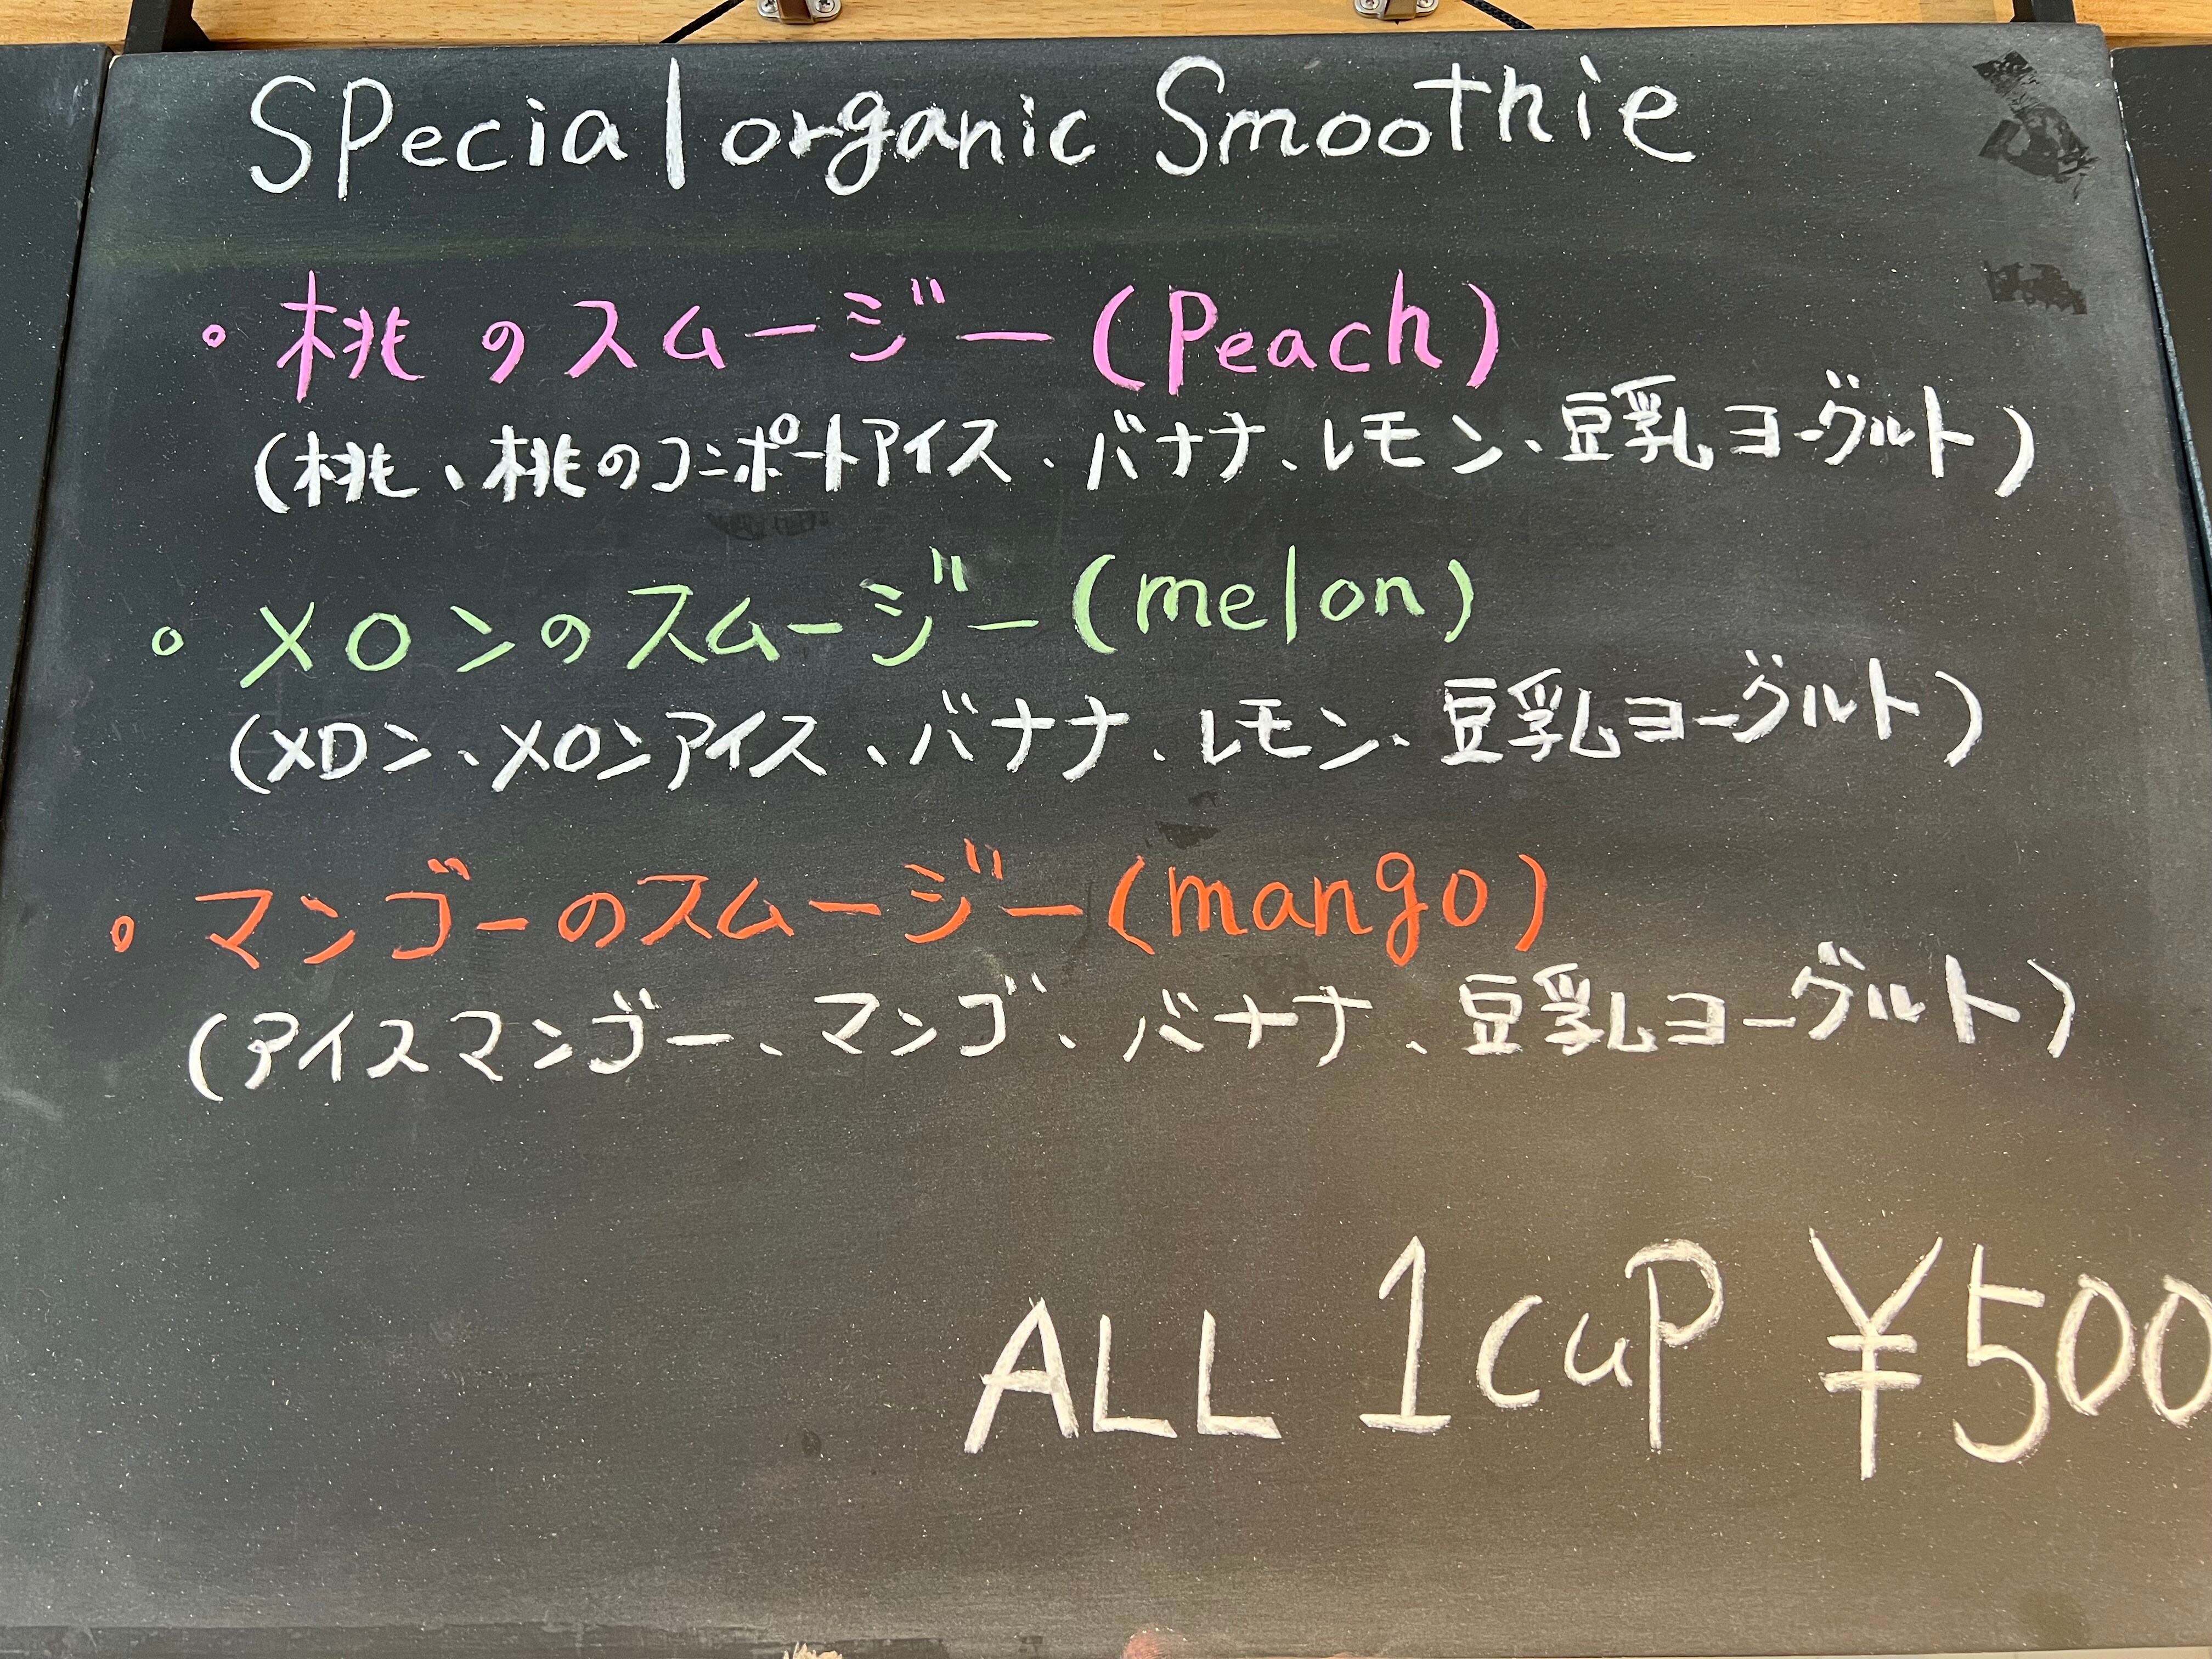 Special organic Smoothie
・桃のスムージー(Peach)
(桃、桃のコンポートアイス、バナナ、レモン、豆乳ヨーグルト)
・メロンのスムージー(melon)
(メロン、メロンアイス、バナナ、レモン、豆乳ヨーグルト)
・マンゴーのスムージー(mango)
(アイスマンゴー、マンゴ、バナナ、豆乳ヨーグルト)
ALL 1cup ¥500